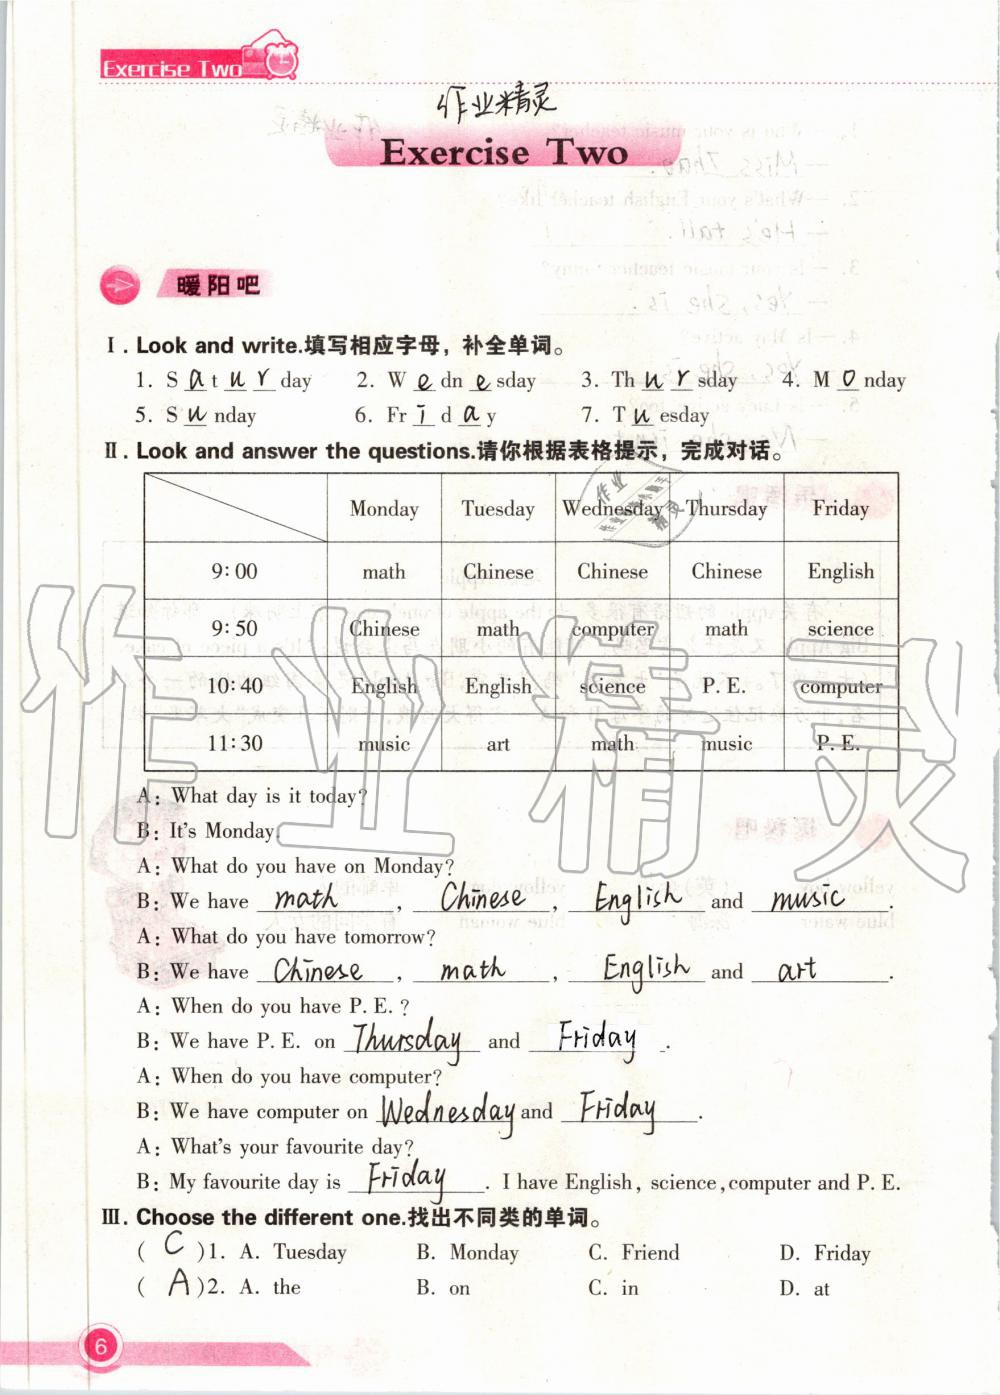 Exercise Two
作业精灵
Exercise Two
暖阳吧
Ⅰ. Look and write.填写相应字母，补全单词。
1. S a t u r day 2. W e dn e sday 3. Th u r sday 4. M o nday
5. S u nday 6. Fr i d a y 7. T u esday
Ⅱ. Look and answer the questions.请你根据表格提示，完成对话。
Monday Tuesday Wednesday Thursday Friday
9:00 math Chinese Chinese Chinese English
9:50 Chinese math computer math science
10:40 English English science P.E. computer
11:30 music art math music P.E.
A: What day is it today?
B: It's Monday.
A: What do you have on Monday?
B: We have math, Chinese, English and music.
A: What do you have tomorrow?
B: We have Chinese, math, English and art.
A: When do you have P.E.?
B: We have P.E. on Thursday and Friday.
A: When do you have computer?
B: We have computer on Wednesday and Friday.
A: What's your favourite day?
B: My favourite day is Friday. I have English, science, computer and P.E.
Ⅲ. Choose the different one.找出不同类的单词。
( C )1. A. Tuesday B. Monday C. Friend D. Friday
( A )2. A. the B. on C. in D. at
6
作业精灵